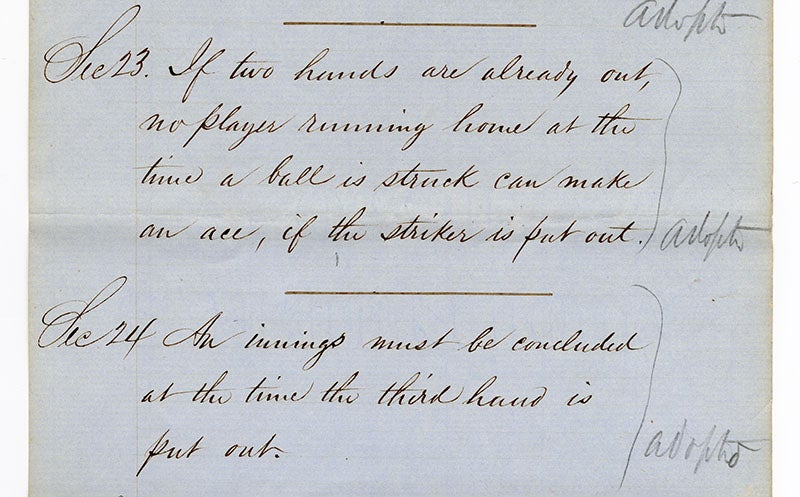 adoptd
Sec 23. If two hands are already out,
no player running home at the
time a ball is struck can make
an ace, if the striker is put out.
adoptd
Sec 24 An innings must be concluded
at the time the third hand is
put out.
adoptd